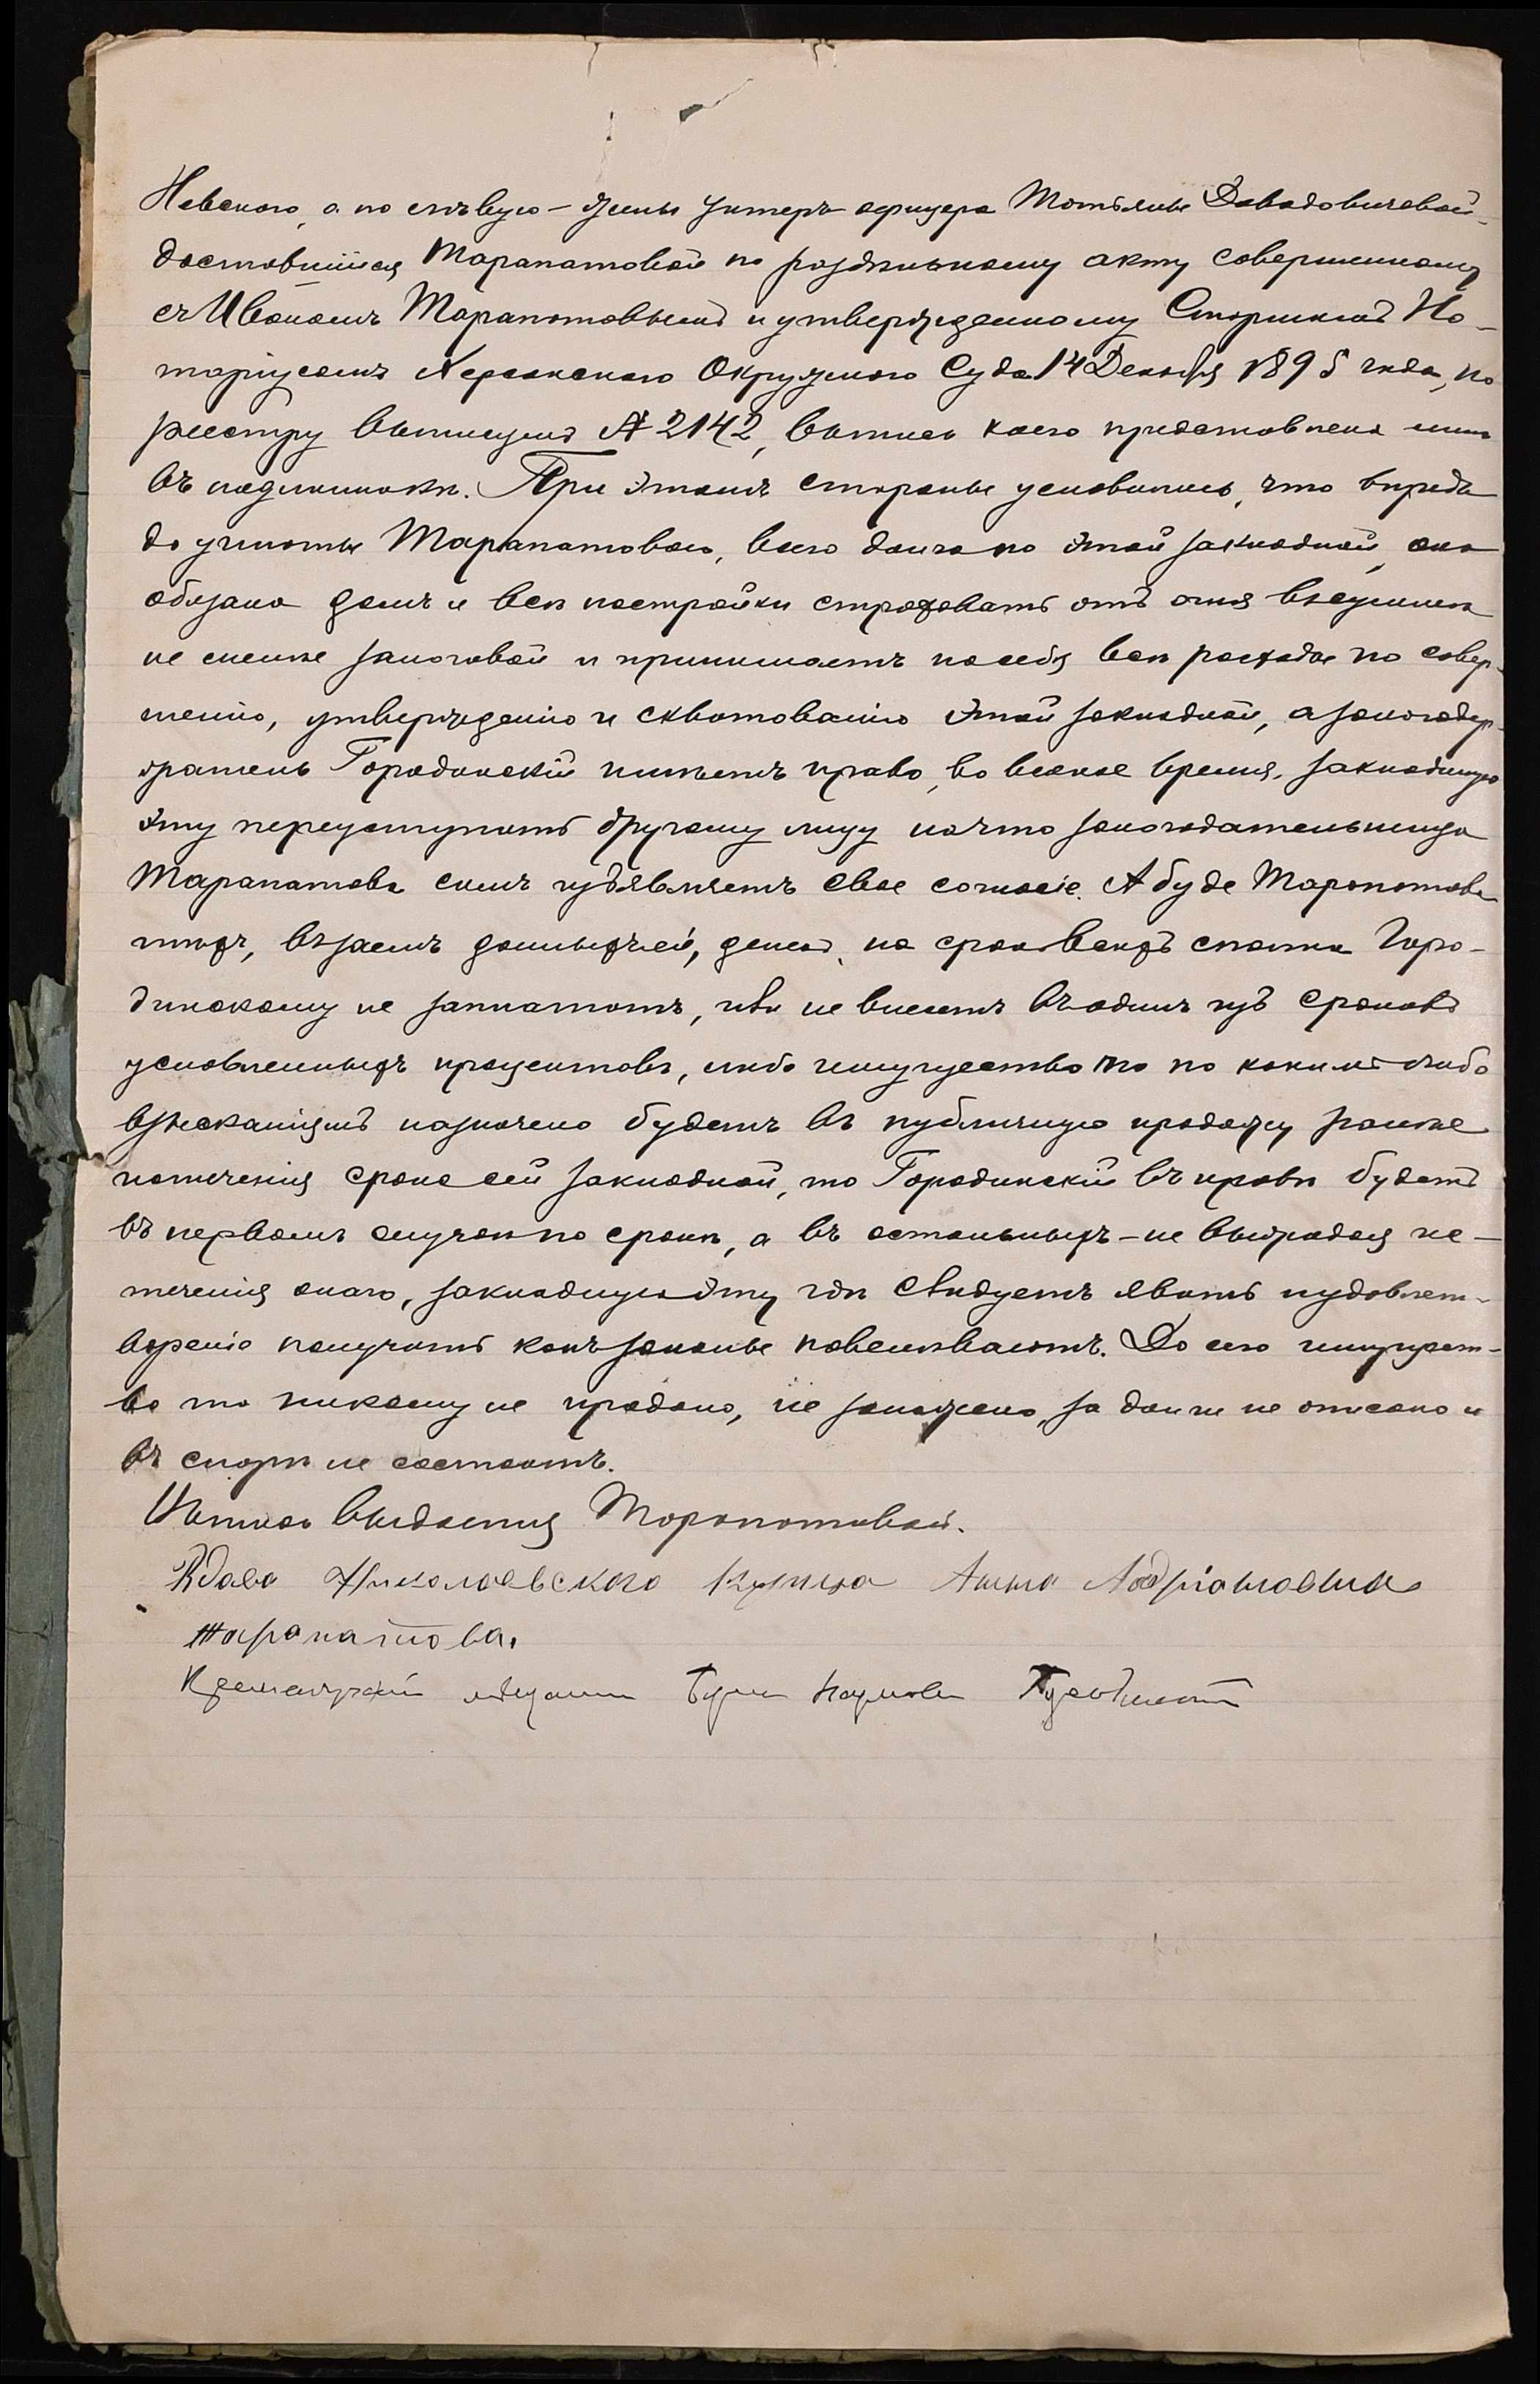 Невскаго, а по лѣвую – жены унтеръ-офицера Татьяны Давидовичевой –
доставшійся Тарапатовой по раздѣльному акту совершенному
съ Иваномъ Тарапатовымъ и утвержденному Старшимъ Но-
таріусомъ Херсонскаго Окружного Суда 14 Декабря 1895 года, по
реестру выписей № 2142, выпись коего представлена мнѣ
въ подлинникѣ. При этомъ стороны условились, что впредь
до уплаты Тарапатовою, всего долга по этой закладной, она
обязана домъ и всѣ постройки страховать отъ огня въ суммѣ
не менѣе залоговой и принимаетъ на себя всѣ расходы по совер-
шенію, утвержденію и сквитованію этой закладной, а залогодер-
жатель Городинскій имѣетъ право, во всякое время, закладную
эту переуступить другому лицу на что залогодательница
Тарапатова симъ изъявляетъ свое согласіе. А буде Тарапатова
тѣхъ, взаемъ данныхъ ей, денегъ, на срокъ всѣхъ сполна Горо-
динскому не заплатитъ, или не внесетъ въ одинъ изъ сроковъ
условленныхъ процентовъ, либо имущество то по какимъ либо
взысканіямъ назначено будетъ въ публичную продажу ранѣе
истеченія срока сей закладной, то Городинскій въ правѣ будетъ
въ первомъ случаѣ по срокѣ, а въ остальныхъ – не выжидая ис-
теченія онаго, закладную эту гдѣ слѣдуетъ явить и удовлет-
вореніе получить какъ законы повелѣваютъ. До сего имущест-
во то никому не продано, не заложено, за долги не описано и
въ спорѣ не состоитъ.
Выпись выдается Тарапатовой.
Вдова Николаевскаго Купца Анна Андріановна
Тарапатова.
Кременчугскій мѣщанин